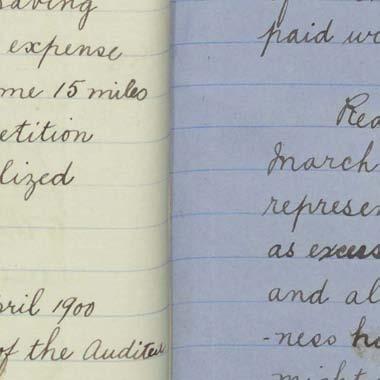 saving
expense
me 15 miles
etition
lized
pril 1900
of the Auditer
paid wo
Rea
March
represen
as excess
and al
-ness ho
might